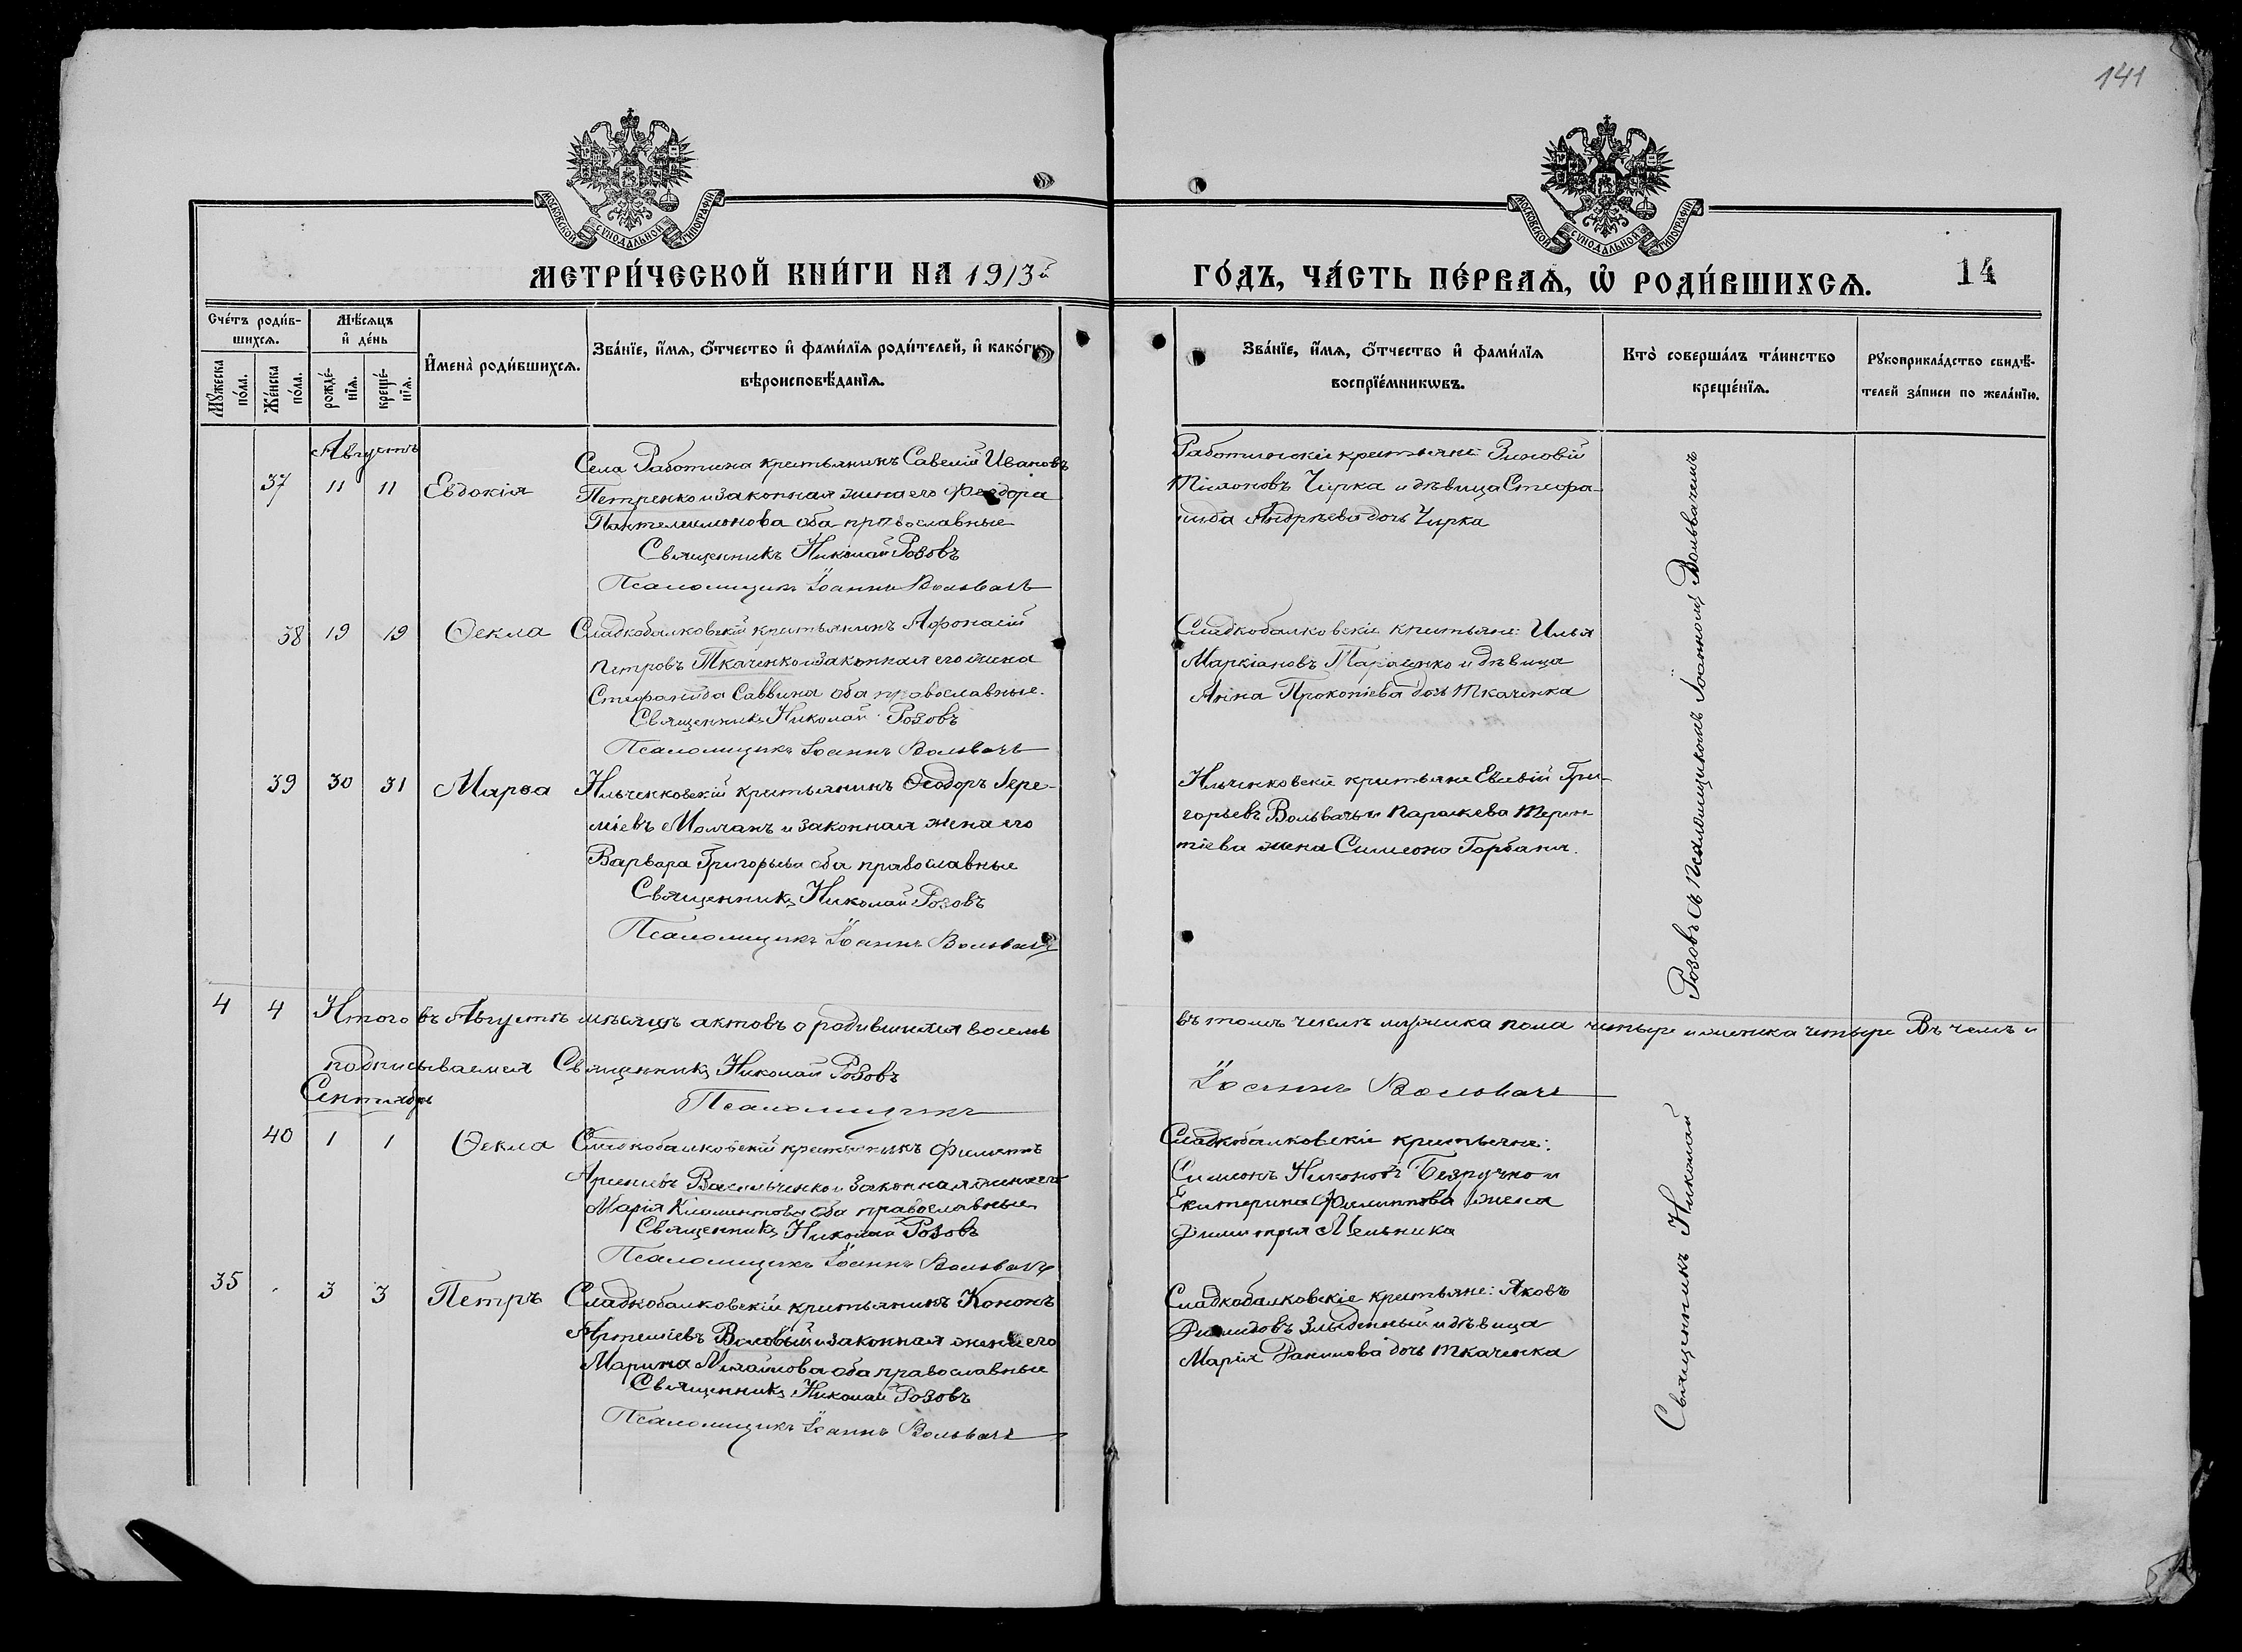 141
МОСКОВСКОЙ СУНОДАЛЬНОЙ ТИПОГРАФІИ
МОСКОВСКОЙ СУНОДАЛЬНОЙ ТИПОГРАФІИ
МЕТРИ́ЧЕСКОЙ КНИ́ГИ НА 1913й
ГО́ДЪ, ЧА́СТЬ ПЕ́РВАѦ, Ѡ҆ РОДИ́ВШИХСѦ.
14
Сче́тъ роди́в-
шихсѧ.
Мꙋжеска
по́ла.
Же́нска
по́ла.
Мѣ́сѧцъ
и҆ де́нь
рожде́-
нїѧ.
креще́-
нїѧ.
И҆мена̀ роди́вшихсѧ.
Зва́нїе, и҆́мѧ, ѻ҆́тчество и҆ фами́лїѧ роди́телей, и҆ како́гѡ
вѣроисповѣ́данїѧ.
Зва́нїе, и҆́мѧ, ѻ҆́тчество и҆ фами́лїѧ
воспрїе́мникѡвъ.
Кто̀ соверша́лъ та́инство
креще́нїѧ.
Рꙋкоприкла́дство свидѣ́-
телей за́писи по жела́нїю.
Августъ
37 11 11 Евдокія
Села Работина крестьянинъ Савелій Ивановъ
Петренко и законная жена его Феодора
Пантелеимонова оба православные
Священникъ Николай Розовъ
Псаломщикъ Іоаннъ Вольвачъ
Работинскіе крестьяне: Зиновій
Тимоновъ Чирка и дѣвица Стефа-
нида Андрѣева дочь Чирка
38 19 19 Ѳекла
Сладкобалковскій крестьянинъ Афонасій
Петровъ Ткаченко и законная его жена
Стефанида Саввина оба православные.
Священникъ Николай Розовъ
Псаломщикъ Іоаннъ Вольвачъ
Сладкобалковскіе крестьяне: Илья
Маркіановъ Паращенко и дѣвица
Анна Прокопіева дочь Ткаченка
39 30 31 Марѳа
Ильченковскій крестьянинъ Ѳеодоръ Іере-
міевъ Молчанъ и законная жена его
Варвара Григорьева оба православные
Священникъ Николай Розовъ
Псаломщикъ Іоаннъ Вольвачъ
Ильченковскіе крестьяне Евсевій Гри-
горьевъ Вольвачъ и Параскева Терен-
тіева жена Симеона Горбаня.
4 4 Итого въ Августѣ мѣсяцѣ актовъ о родившихся восемь
въ томъ числѣ мужска пола четыре и женска четыре Въ чемъ и
подписываемся Священникъ Николай Розовъ
Псаломщикъ
Іоаннъ Вольвачъ
Сентябрь
40 1 1 Ѳекла
Сладкобалковскій крестьянинъ Филиппъ
Арсеніевъ Васильченко и законная жена его
Марія Климентова оба православные
Священникъ Николай Розовъ
Псаломщикъ Іоаннъ Вольвачъ
Сладкобалковскіе крестьяне:
Симеонъ Никоновъ Безручко и
Екатерина Филиппова жена
Димитрія Мельника
35 3 3 Петръ
Сладкобалковскій крестьянинъ Кононъ
Артеміевъ Воловый и законная жена его
Марина Михайлова оба православные
Священникъ Николай Розовъ
Псаломщикъ Іоаннъ Вольвачъ
Сладкобалковскіе крестьяне: Яковъ
Злыденный и дѣвица
Марія Данилова дочь Ткаченка
Священникъ Николай
Розовъ съ псаломщикомъ Іоанномъ Вольвачемъ